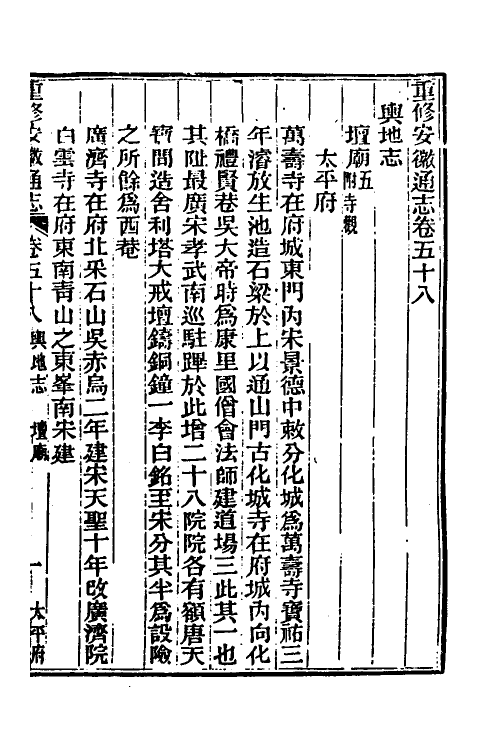 重修安徽通志卷五十八
輿地志
壇廟五附寺觀
太平府
萬壽寺在府城東門內宋景德中敕分化城爲萬壽寺寶祐三
年濬放生池造石梁於上以通山門古化城寺在府城內向化
橋禮賢巷吳大帝時爲康里國僧會法師建道場三此其一也
其阯最廣宋孝武南巡駐蹕於此增二十八院院各有額唐天
寶間造舍利塔大戒壇鑄銅鐘一李白銘至宋分其半爲設險
之所餘爲西菴
廣濟寺在府北采石山吳赤烏二年建宋天聖十年改廣濟院
白雲寺在府東南青山之東峯南宋建
重修安徽通志 卷五十八 輿地志 壇廟 一 太平府